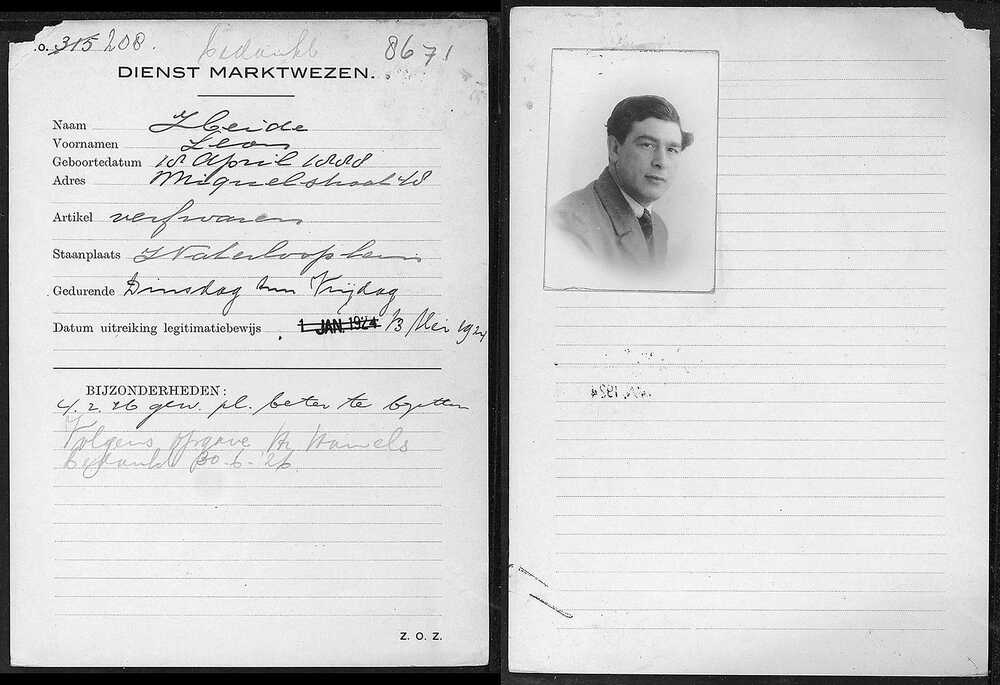 O. 315 208. Bedankt 8671
DIENST MARKTWEZEN.
Naam Heide
Voornamen Leon
Geboortedatum 18 April 1888
Adres Miquelstraat 48
Artikel verfwaren
Staanplaats Waterlooplein
Gedurende Dinsdag t/m Vrijdag
Datum uitreiking legitimatiebewijs 1 JAN. 1924 13 Mei 1924
BIJZONDERHEDEN:
4.2.26 gew. pl. beter te bezetten
Volgens opgave Hr
bedankt 30-6-'26
Z. O. Z.
JAN. 1924